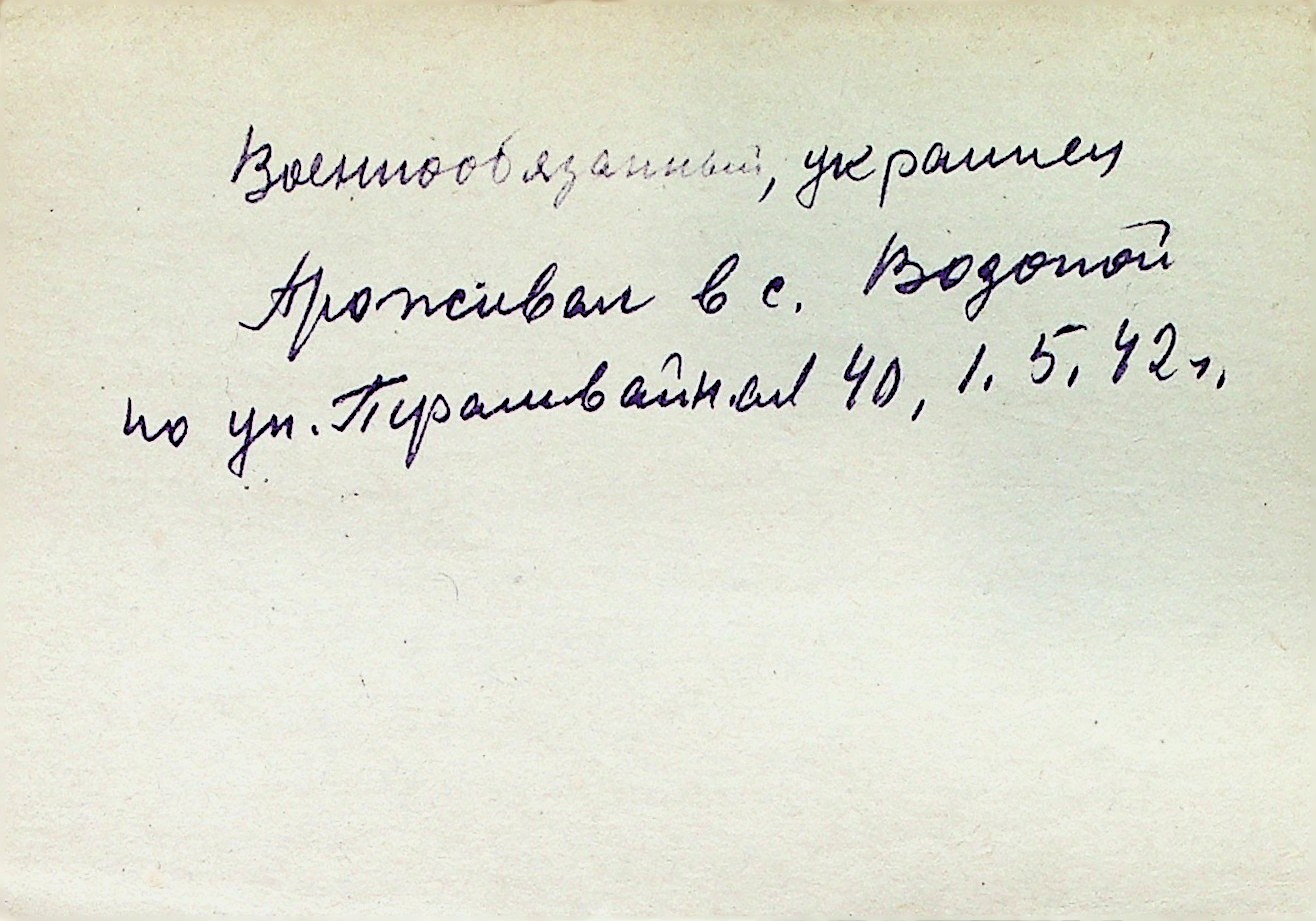 Военнообязанный, украинец
Проживал в с. Водопой
по ул. Трамвайная 40, 1.5.42 г.